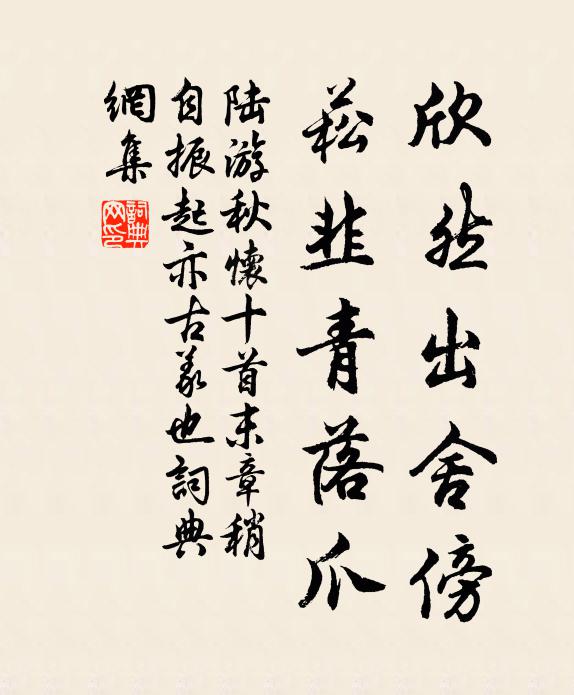 欣然出舍傍
菘韭青落爪
陆游秋懷十首末章稍
自振起亦古義也詞典
網集
詞典网印